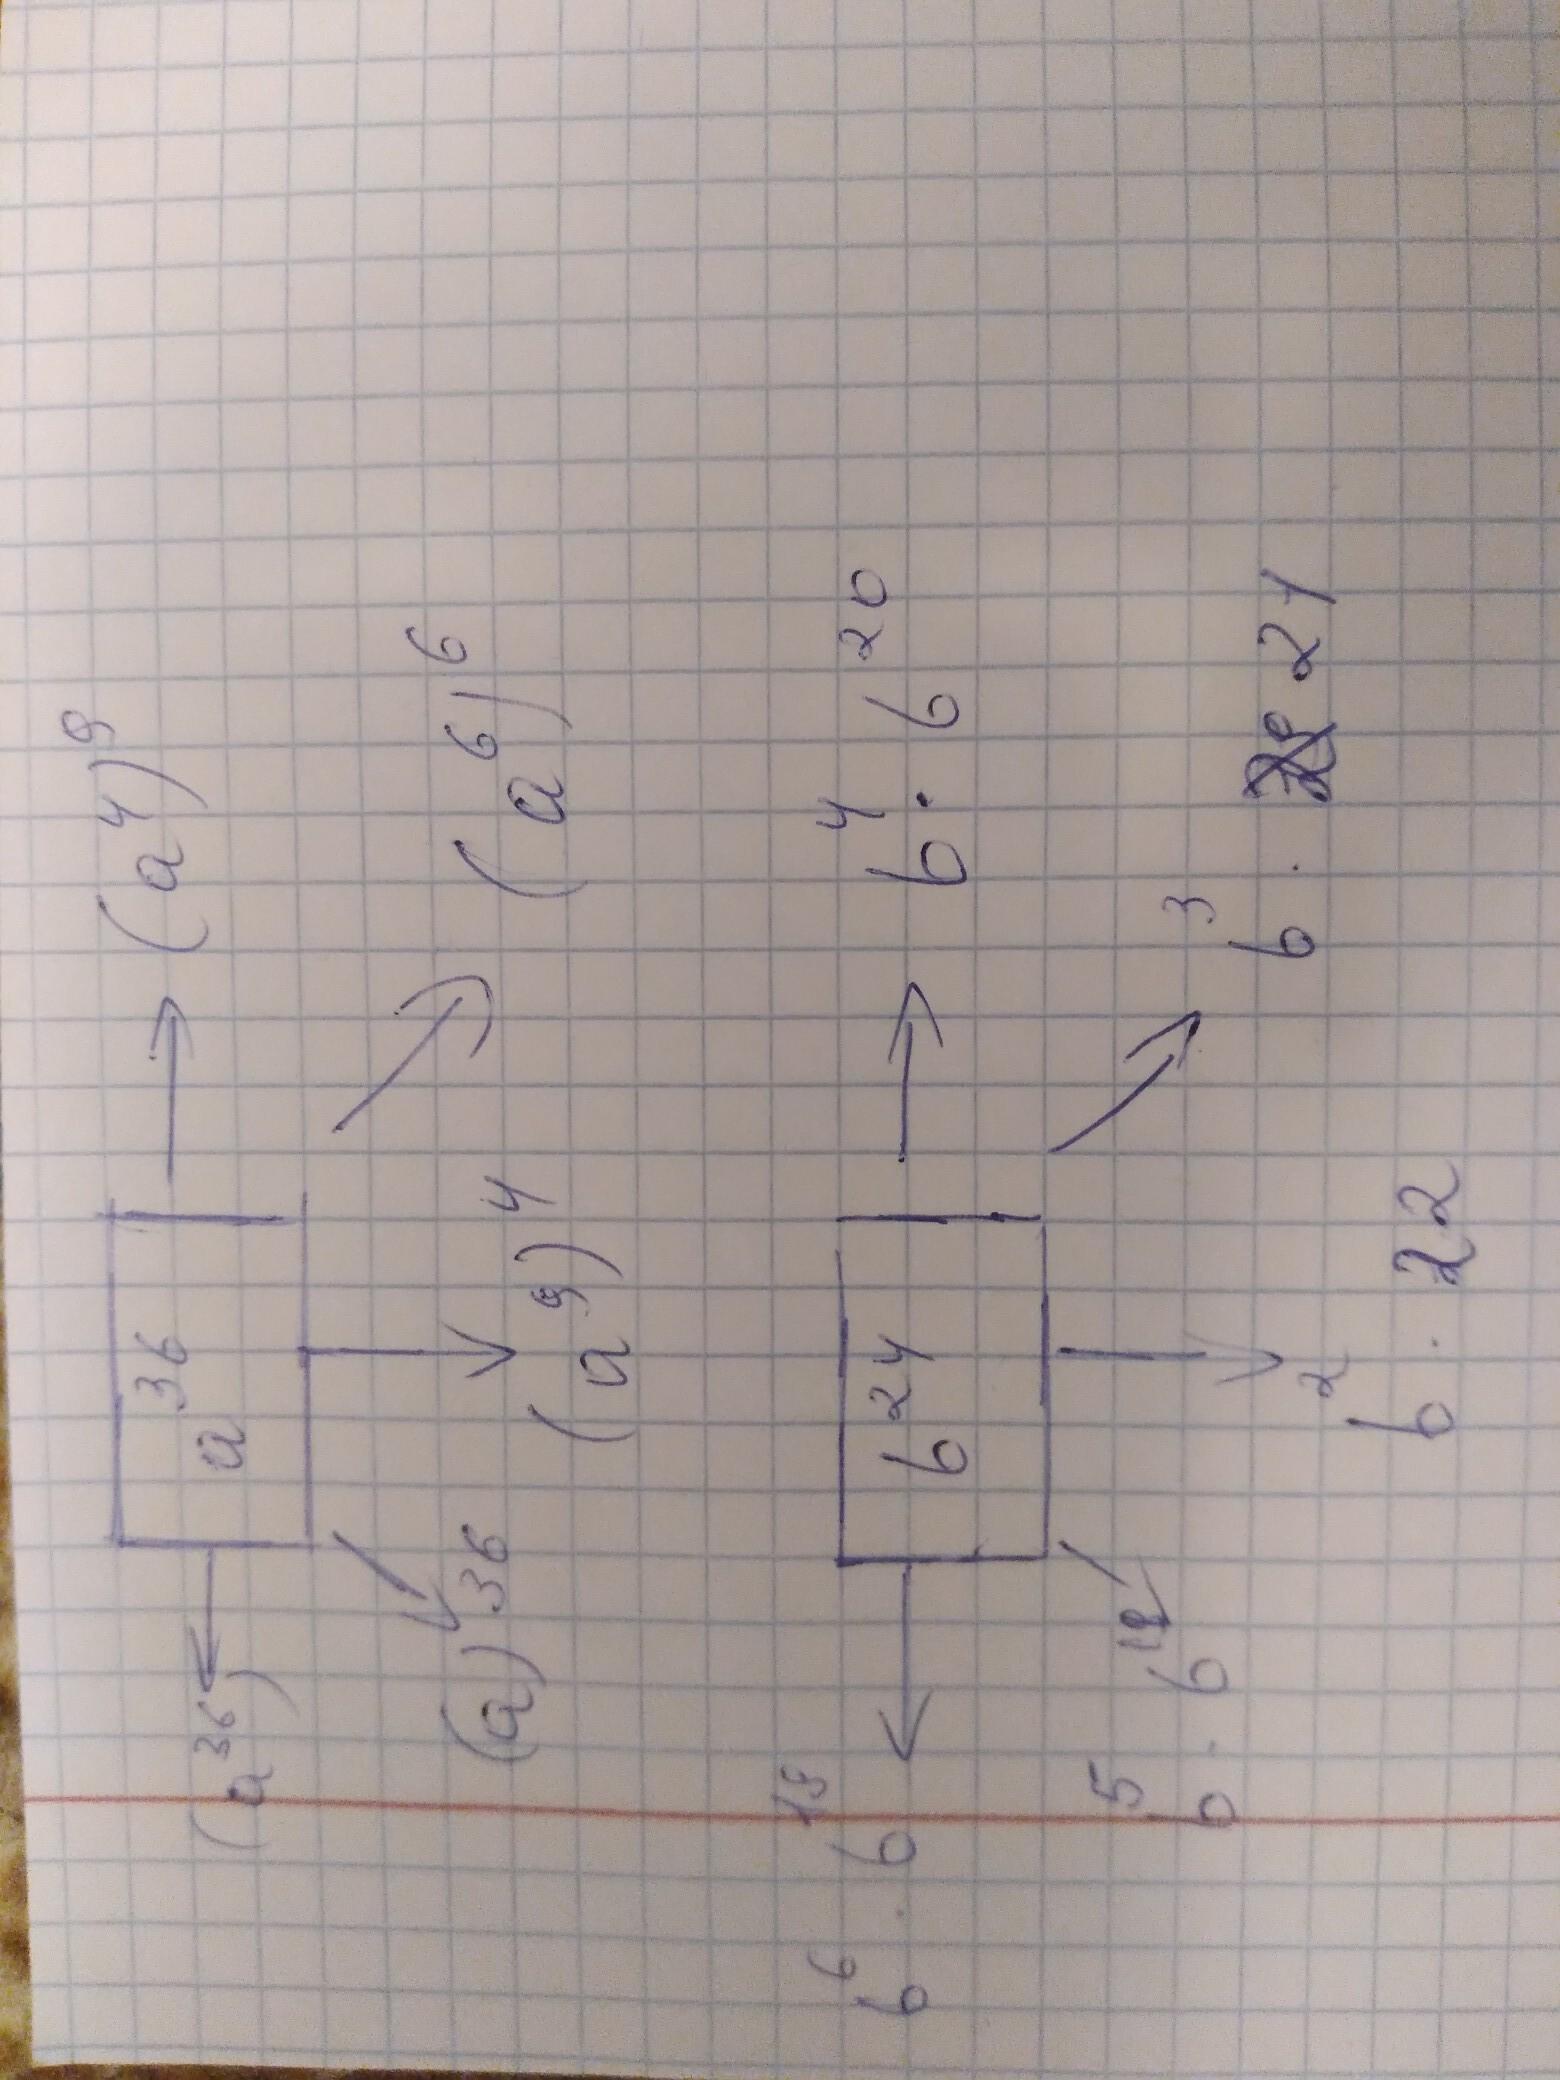 a³⁶
(a³⁶)
(a)³⁶
(a⁹)⁴
(a⁶)⁶
(a⁴)⁹
b²⁴
b⁶ · b¹⁸
b⁵ · b¹⁹
b² · 22
b³ · 21
b⁴ · b²⁰